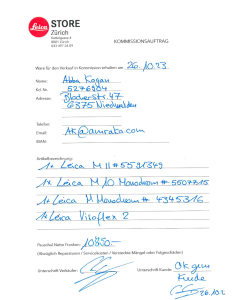 Leica STORE
Zürich
8001 Zürich
KOMMISSIONSAUFTRAG
Ware für den Verkauf in Kommission erhalten am: 26.10.23
Name: Abba Kogan
Kd. Nr. 5276904
Adresse:
6375 Niedwalden
Telefon:
Email: AK@amrota.com
IBAN:
Artikelbezeichnung:
1x Leica M11 #5591349
1x Leica M10 Monochrom # 5507715
1x Leica M Monochrom # 4345316
1x Leica Visoflex 2
Pauschal Netto Franken: 10'850.—
(Abzüglich Reparaturen / Servicekosten / Versteckte Mängel oder Folgeschäden)
Unterschrift Verkäufer:
Unterschrift Kunde:
26.10.2